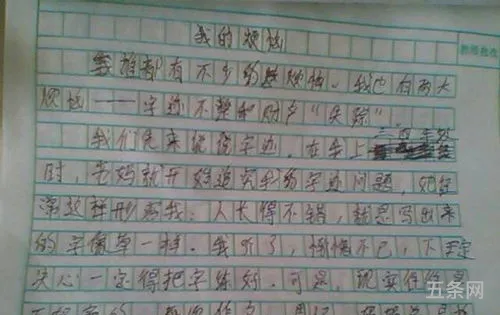 我的烦恼
谁都有不少的烦恼。我也有两大
烦恼——字迹不整和财产“失踪”
我们先来说说字迹，在我上二年级
时，老妈就开始追究我的字迹问题，她经
常这样形容我：人长得不错，就是写出来
的字像草一样。我听了，惭愧不已，下定
决心一定得把字练好。可是，现实往往是
五条网